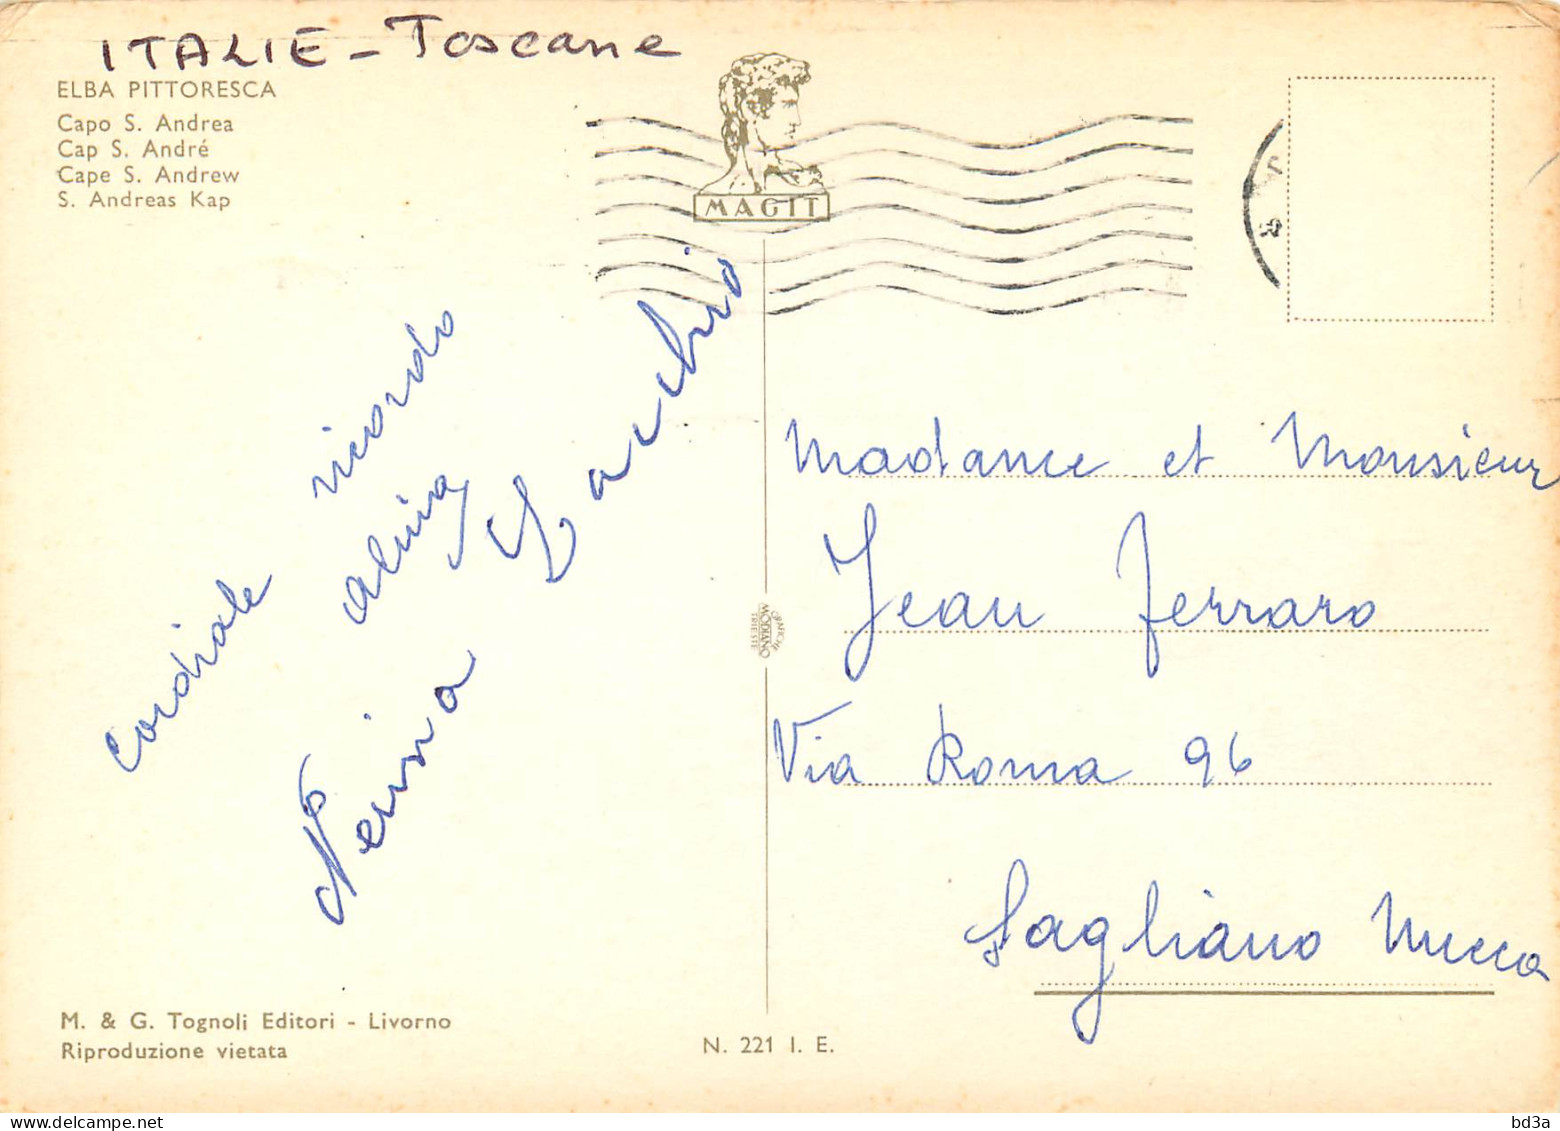 ITALIE - Toscane
ELBA PITTORESCA
Capo S. Andrea
Cap S. André
Cape S. Andrew
S. Andreas Kap
MAGIT
cordiale ricordo
Nerina
Madame et Monsieur
Jean Ferraro
Via Roma 96
Sagliano Micca
GRAFICHE
MODIANO
TRIESTE
M. & G. Tognoli Editori - Livorno
Riproduzione vietata
N. 221 I. E.
bd3a